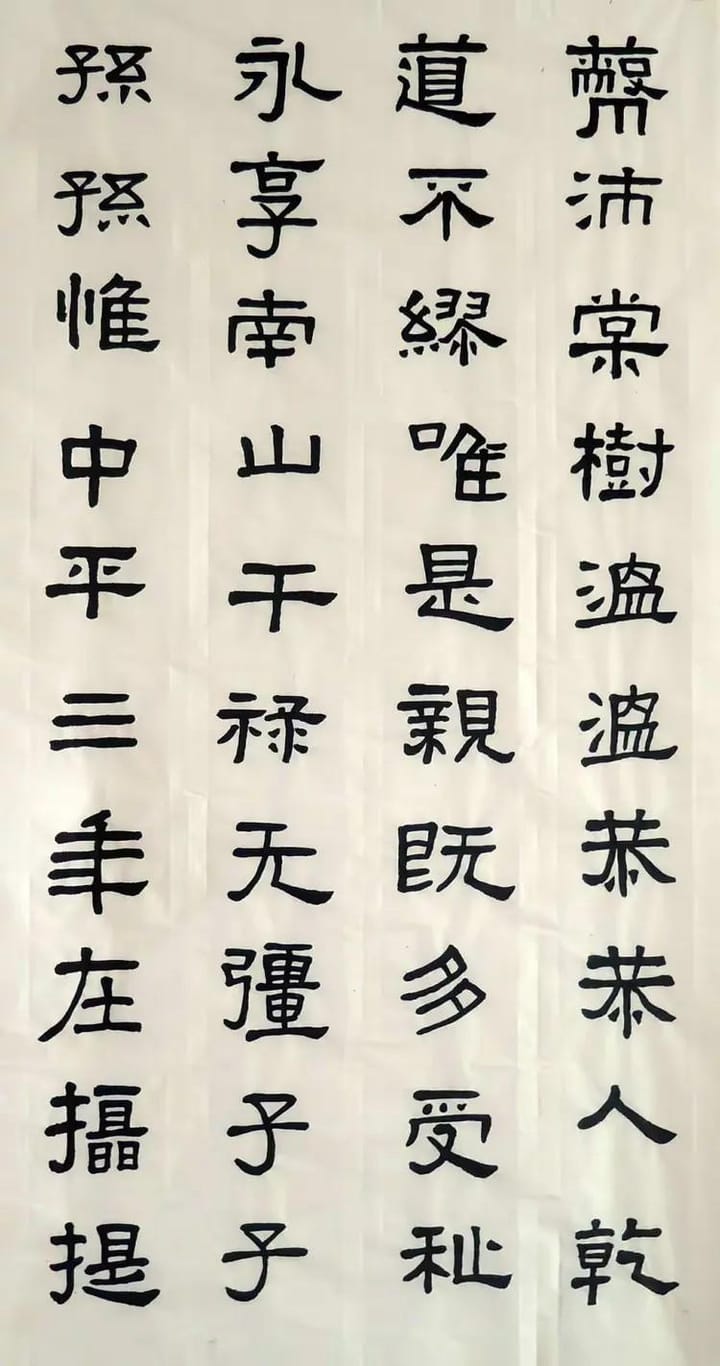 沛棠樹温温恭恭人乾
道不繆唯是親既多受祉
永享南山干禄无彊子子
孫孫惟中平三年在攝提